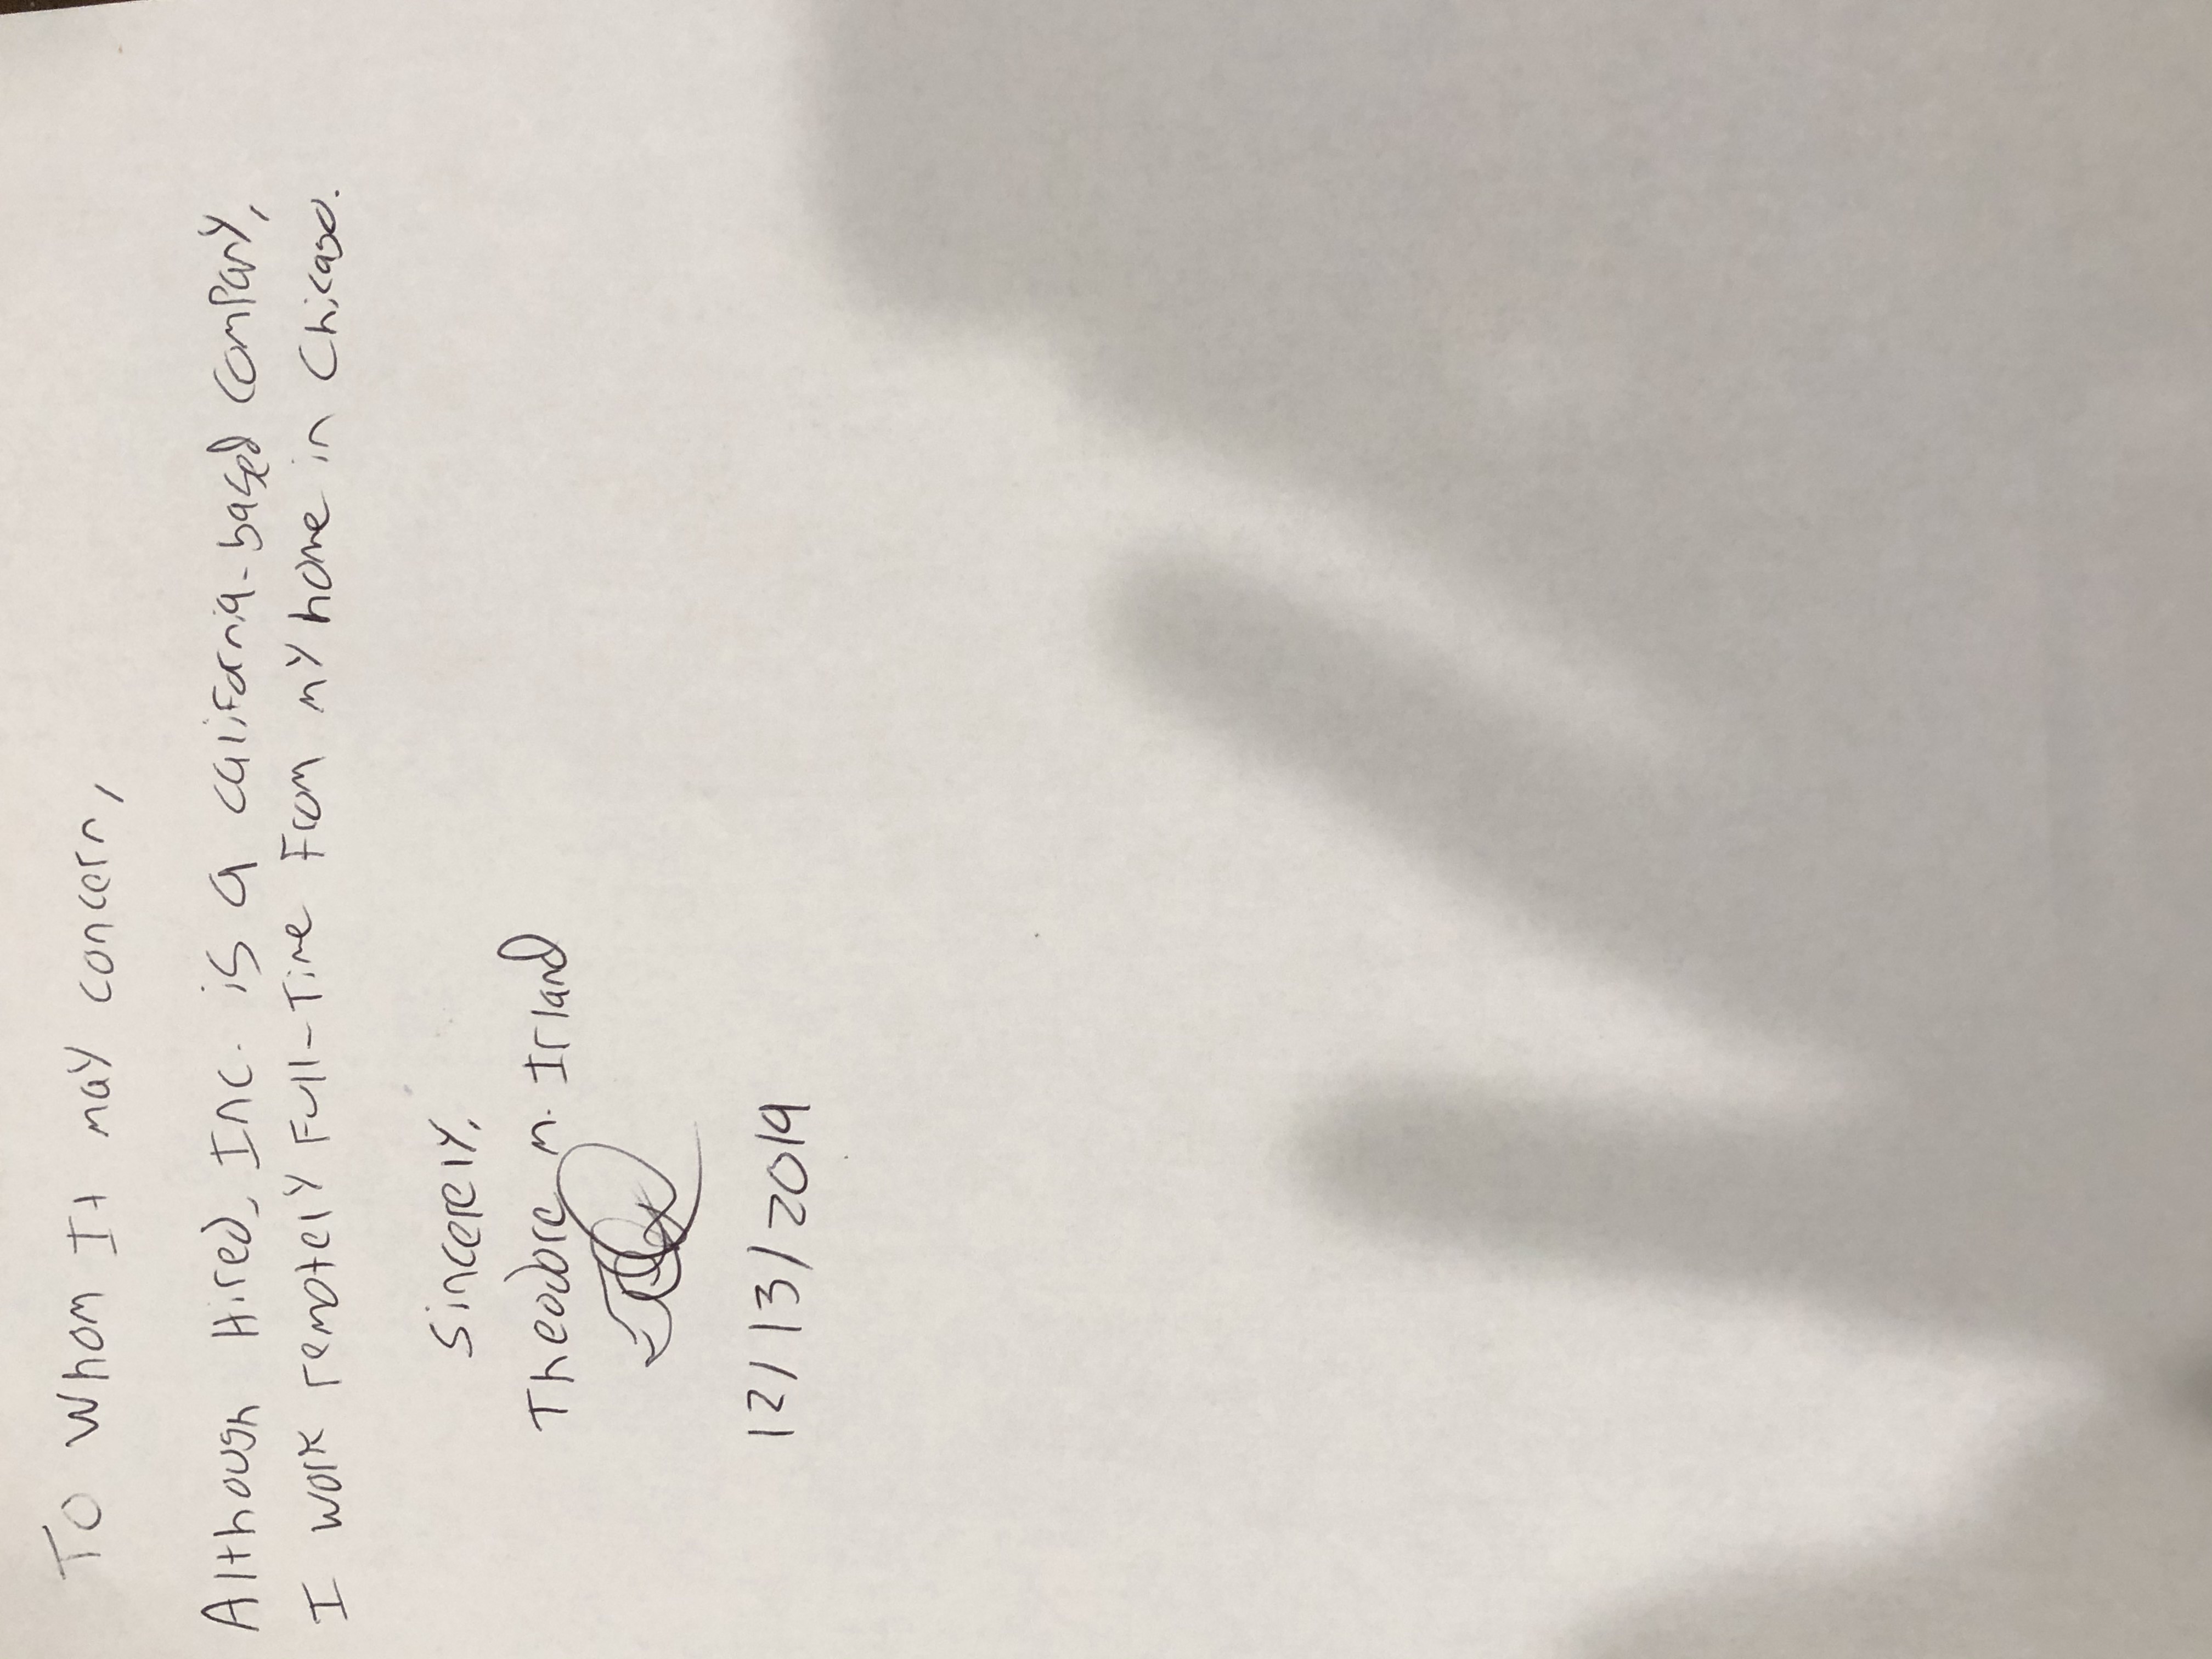 To Whom It may concern,
Although Hired, Inc. is a california-based company,
I work remotely Full-Time From my home in Chicago.
Sincerely,
Theodore M. Irland
12/13/2019